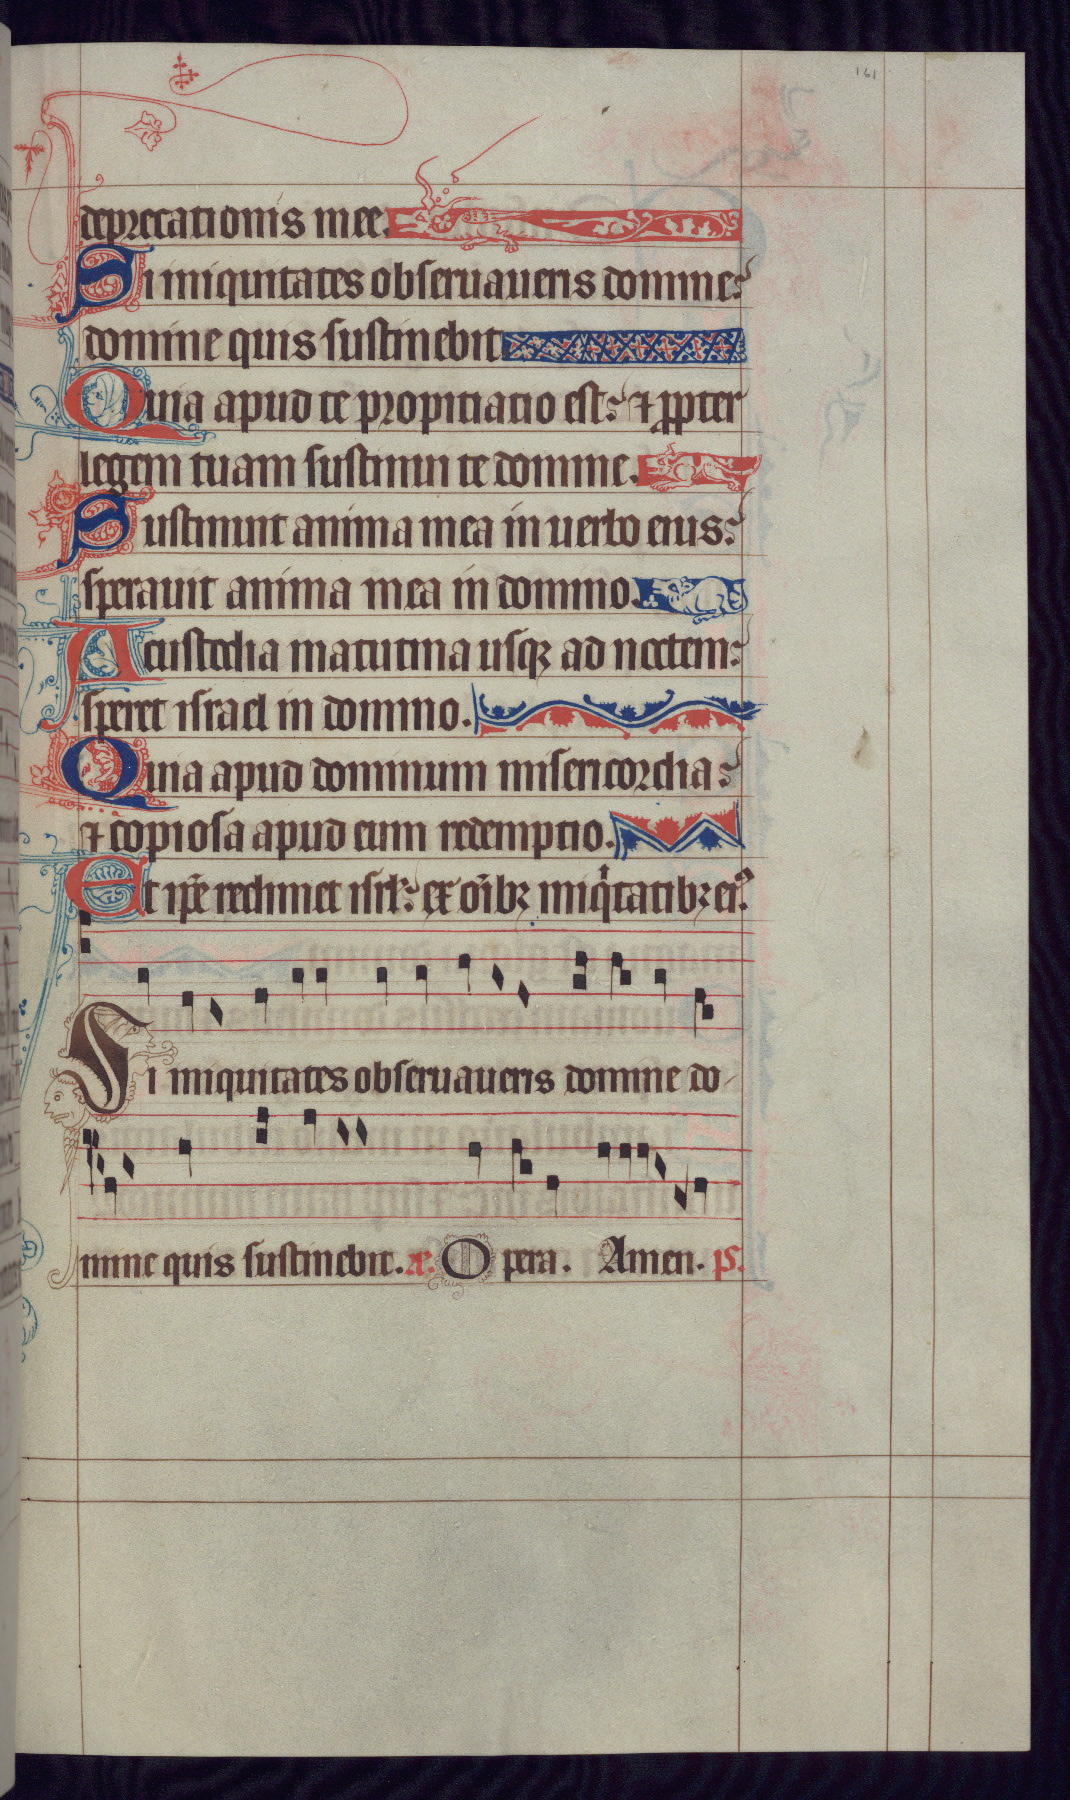 161
deprecationis mee.
Si iniquitates obseruaueris domine:
domine quis sustinebit.
Quia apud te propitiatio est: ⁊ ꝓpter
legem tuam sustinui te domine.
Sustinuit anima mea in uerbo eius:
sperauit anima mea in domino.
A custodia matutina usqꝫ ad noctem:
speret israel in domino.
Quia apud dominum misericordia:
⁊ copiosa apud eum redemptio.
Et ip̄e redimet isrl̓: ex oībꝫ iniqͥtatibꝫ eiꝰ.
Si iniquitates obseruaueris domine do-
mine quis sustinebit. æ. Opera. Amen. pˢ.